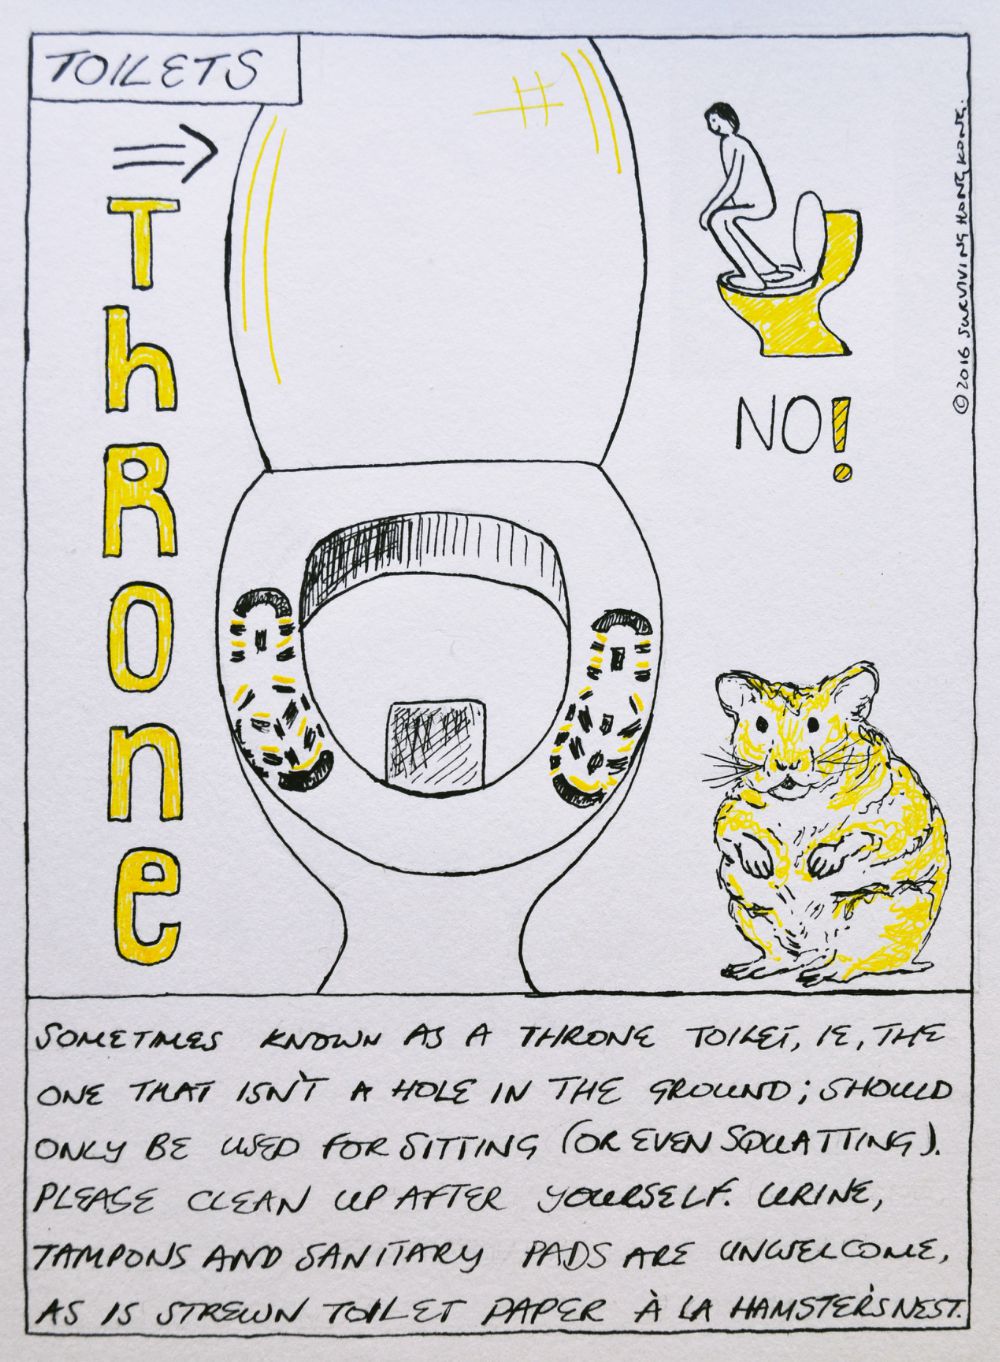 TOILETS
ThRone
NO!
© 2016 SURVIVING HONG KONG.
SOMETIMES KNOWN AS A THRONE TOILET, IE, THE
ONE THAT ISN'T A HOLE IN THE GROUND; SHOULD
ONLY BE USED FOR SITTING (OR EVEN SQUATTING).
PLEASE CLEAN UP AFTER YOURSELF. URINE,
TAMPONS AND SANITARY PADS ARE UNWELCOME,
AS IS STREWN TOILET PAPER À LA HAMSTER'S NEST.